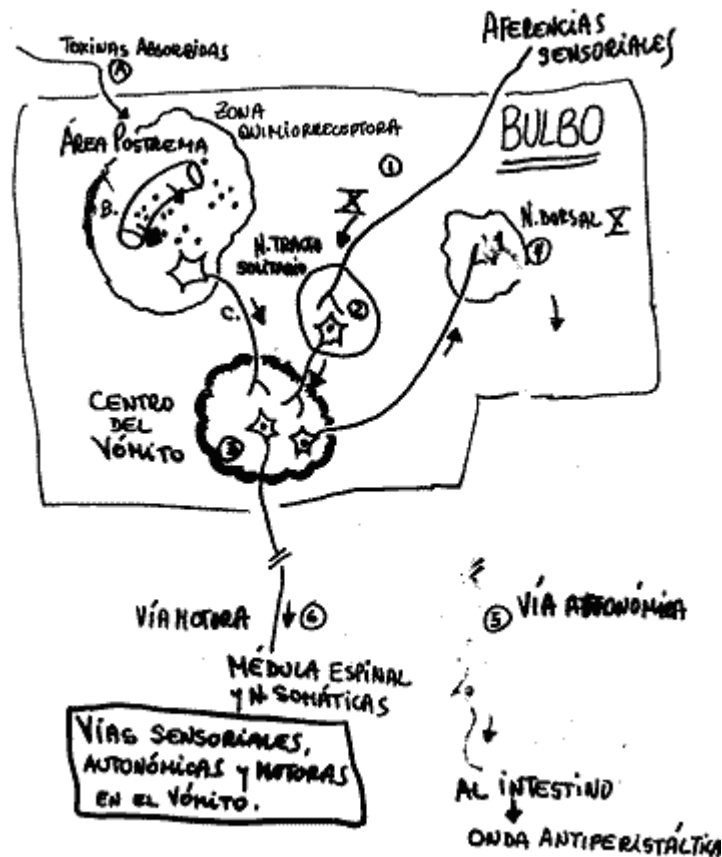 TOXINAS ABSORBIDAS
A
AFERENCIAS
SENSORIALES
ZONA
QUIMIORRECEPTORA
ÁREA POSTREMA
BULBO
B.
1
X
N. TRACTO
SOLITARIO
2
N. DORSAL X
4
C.
CENTRO
DEL
VÓMITO
3
VÍA MOTORA
6
5
VÍA AUTONÓMICA
MÉDULA ESPINAL
Y N SOMÁTICAS
VÍAS SENSORIALES,
AUTONÓMICAS y MOTORAS
EN EL VÓMITO.
AL INTESTINO
ONDA ANTIPERISTÁLTICA